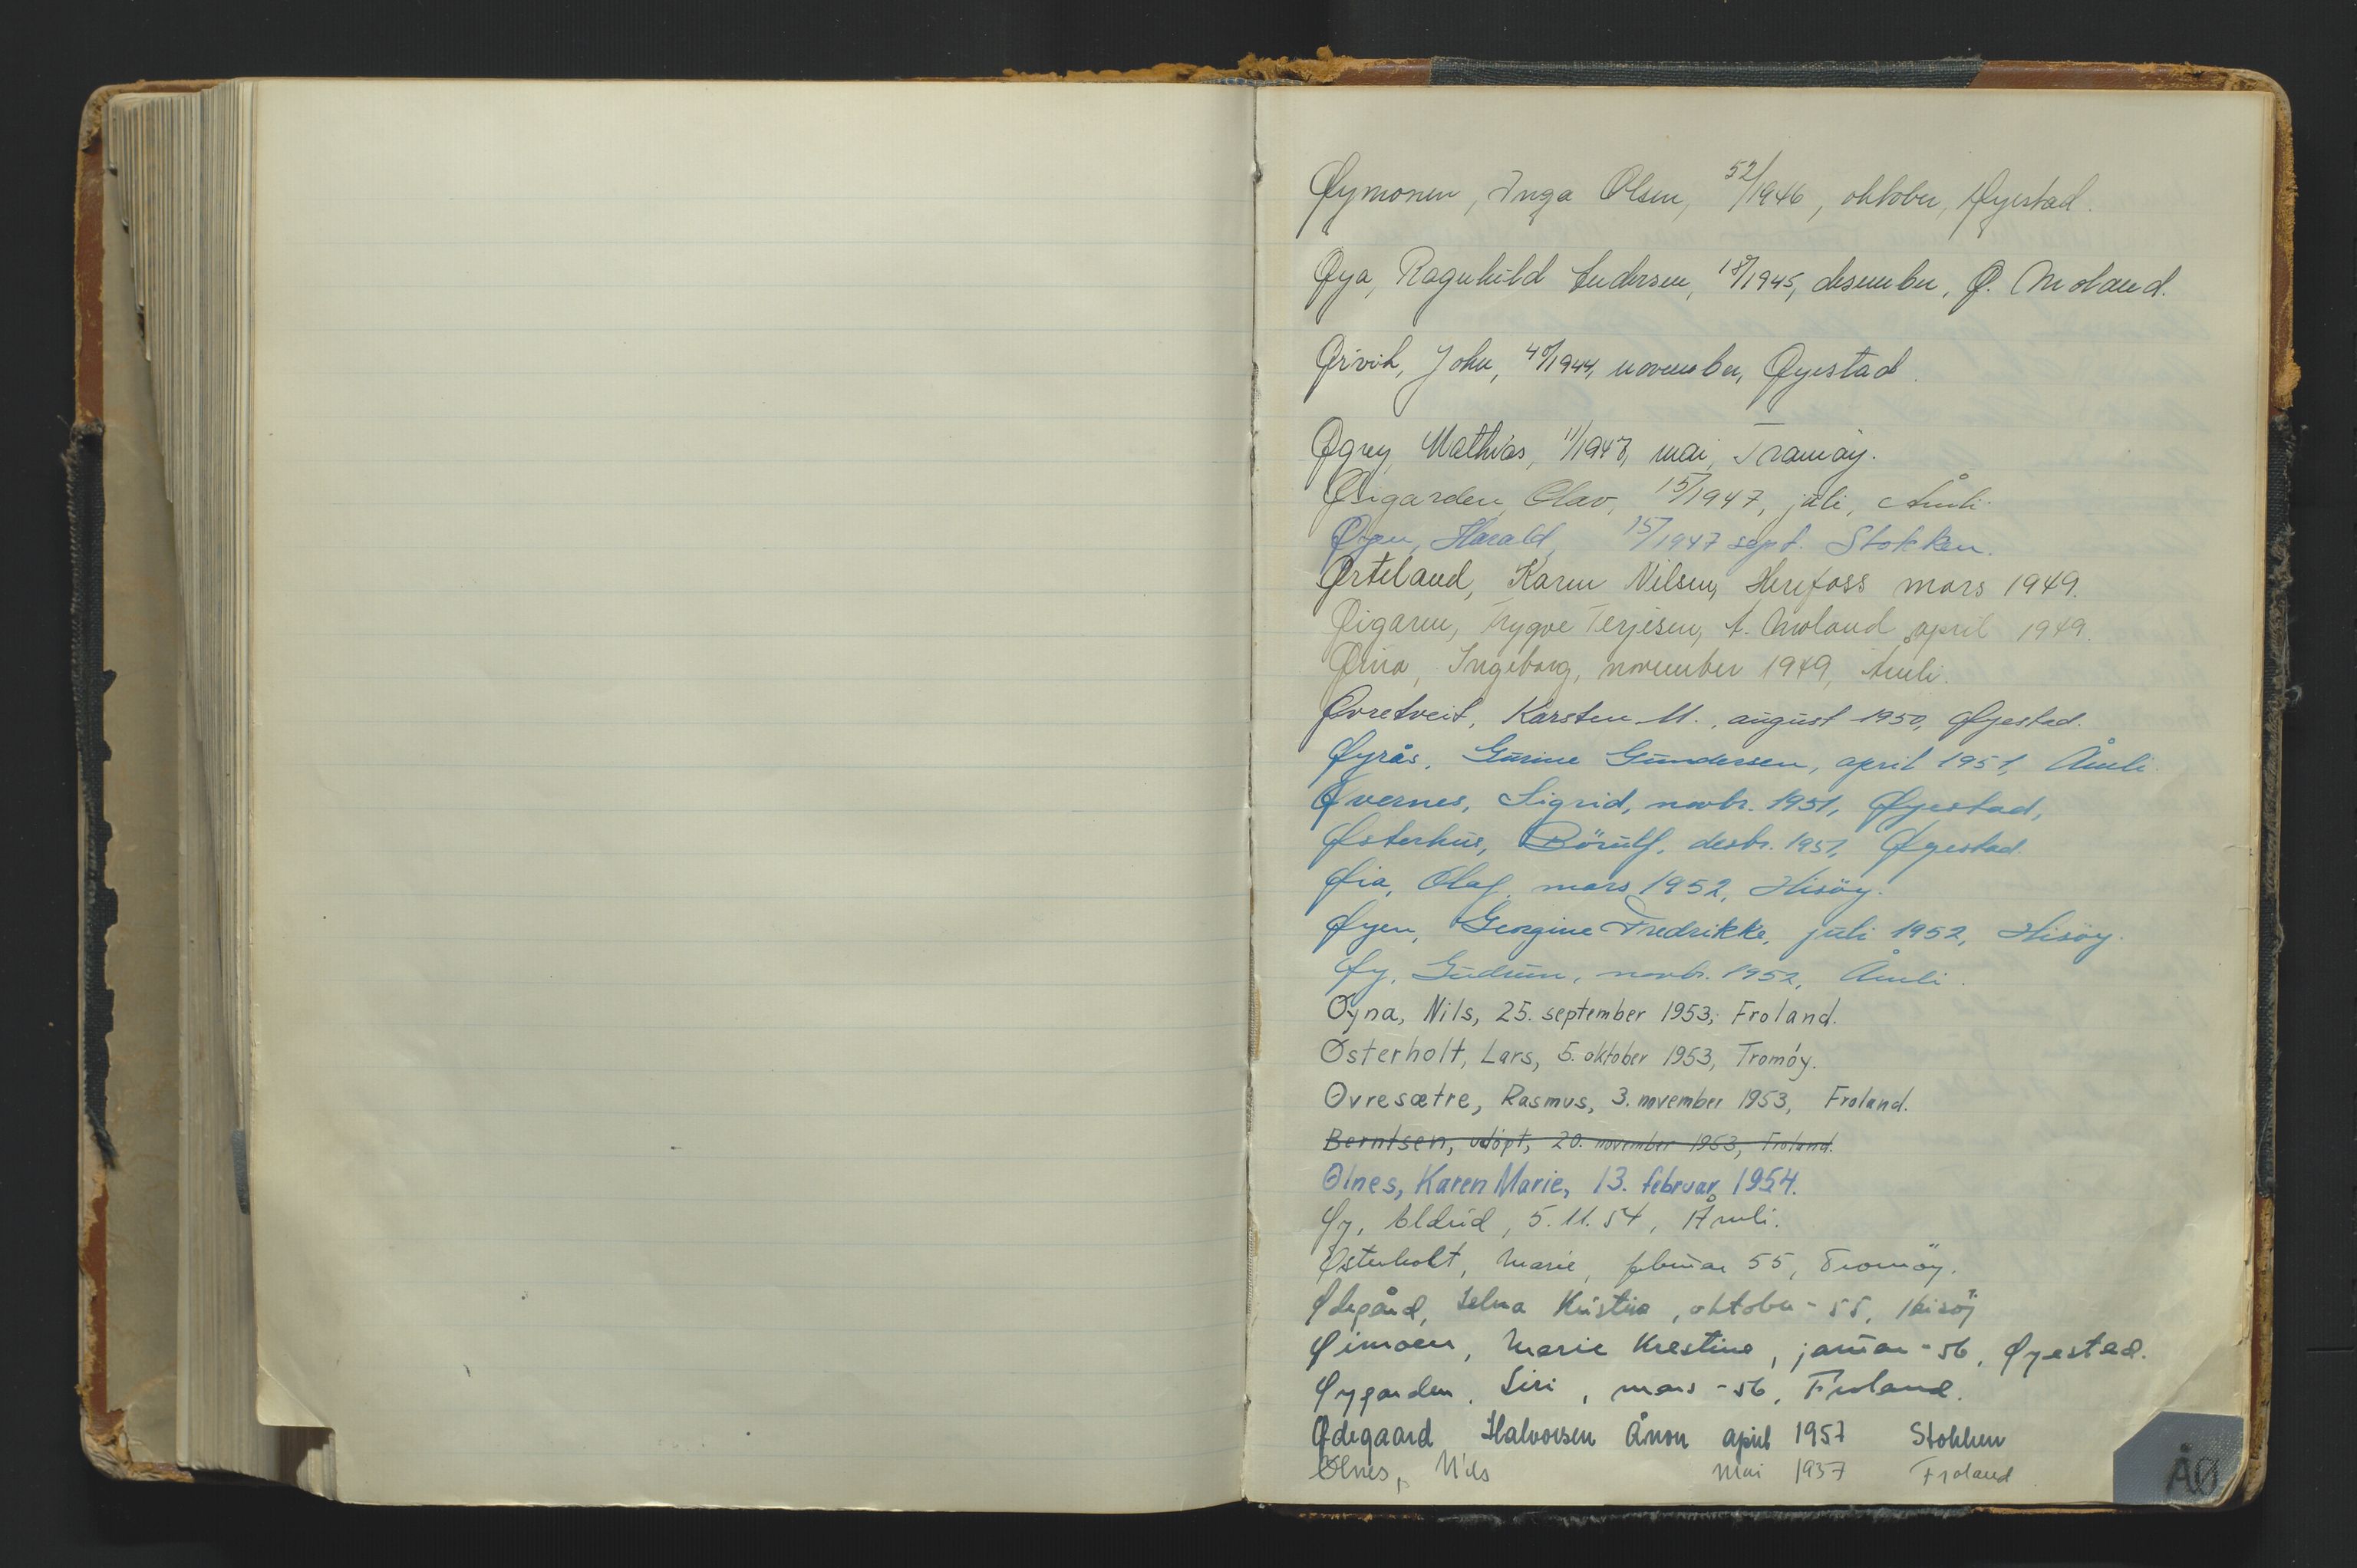 Øymonen, Inga Olsen, 52/1946, oktober, Øyestad.
Øya, Ragnhild Andersen, 18/1945, desember, Ø. Moland.
Ørvik, John, 40/1944, november, Øyestad.
Øgrey, Mathias, 11/1947, mai, Tromøy.
Øigarden, Olav, 15/1947, juli, Åmli.
Øyen, Harald, 15/1947 sept. Stokken.
Ørteland, Karen Nilsen, Herefoss mars 1949.
Øigaren, Trygve Terjesen, A. Moland april 1949.
Øina, Ingeborg, november 1949, Åmli.
Øvretveit, Karsten M., august 1950, Øyestad.
Øyrås, Gurine Gundersen, april 1951, Åmli.
Øvernes, Sigrid, novbr. 1951, Øyestad,
Østerhus, Börulf, desbr. 1951, Øyestad.
Øia, Olaf, mars 1952, Hisöy.
Øyen, Georgine Fredrikke, juli 1952, Hisöy.
Øy, Gudrun, novbr. 1952, Åmli.
Øyna, Nils, 25. september 1953, Froland.
Østerholt, Lars, 5. oktober 1953, Tromöy.
Øvresætre, Rasmus, 3. november 1953, Froland.
Berntsen, udöpt, 20. november 1953, Froland.
Ølnes, Karen Marie, 13. februar 1954.
Øy, Eldrid, 5.11.54, Åmli.
Østerholt, Marie, februar 55, Tromöy.
Ødegård, Selma Kristine, oktober - 55, Hisöy
Øimoen, Marie Krestine, januar - 56, Øyestad.
Øygarden, Siri, mars - 56, Froland.
Ødegaard Halvorsen Ånon april 1957 Stokken
Ølnes, Nils mai 1957 Froland
ÅØ